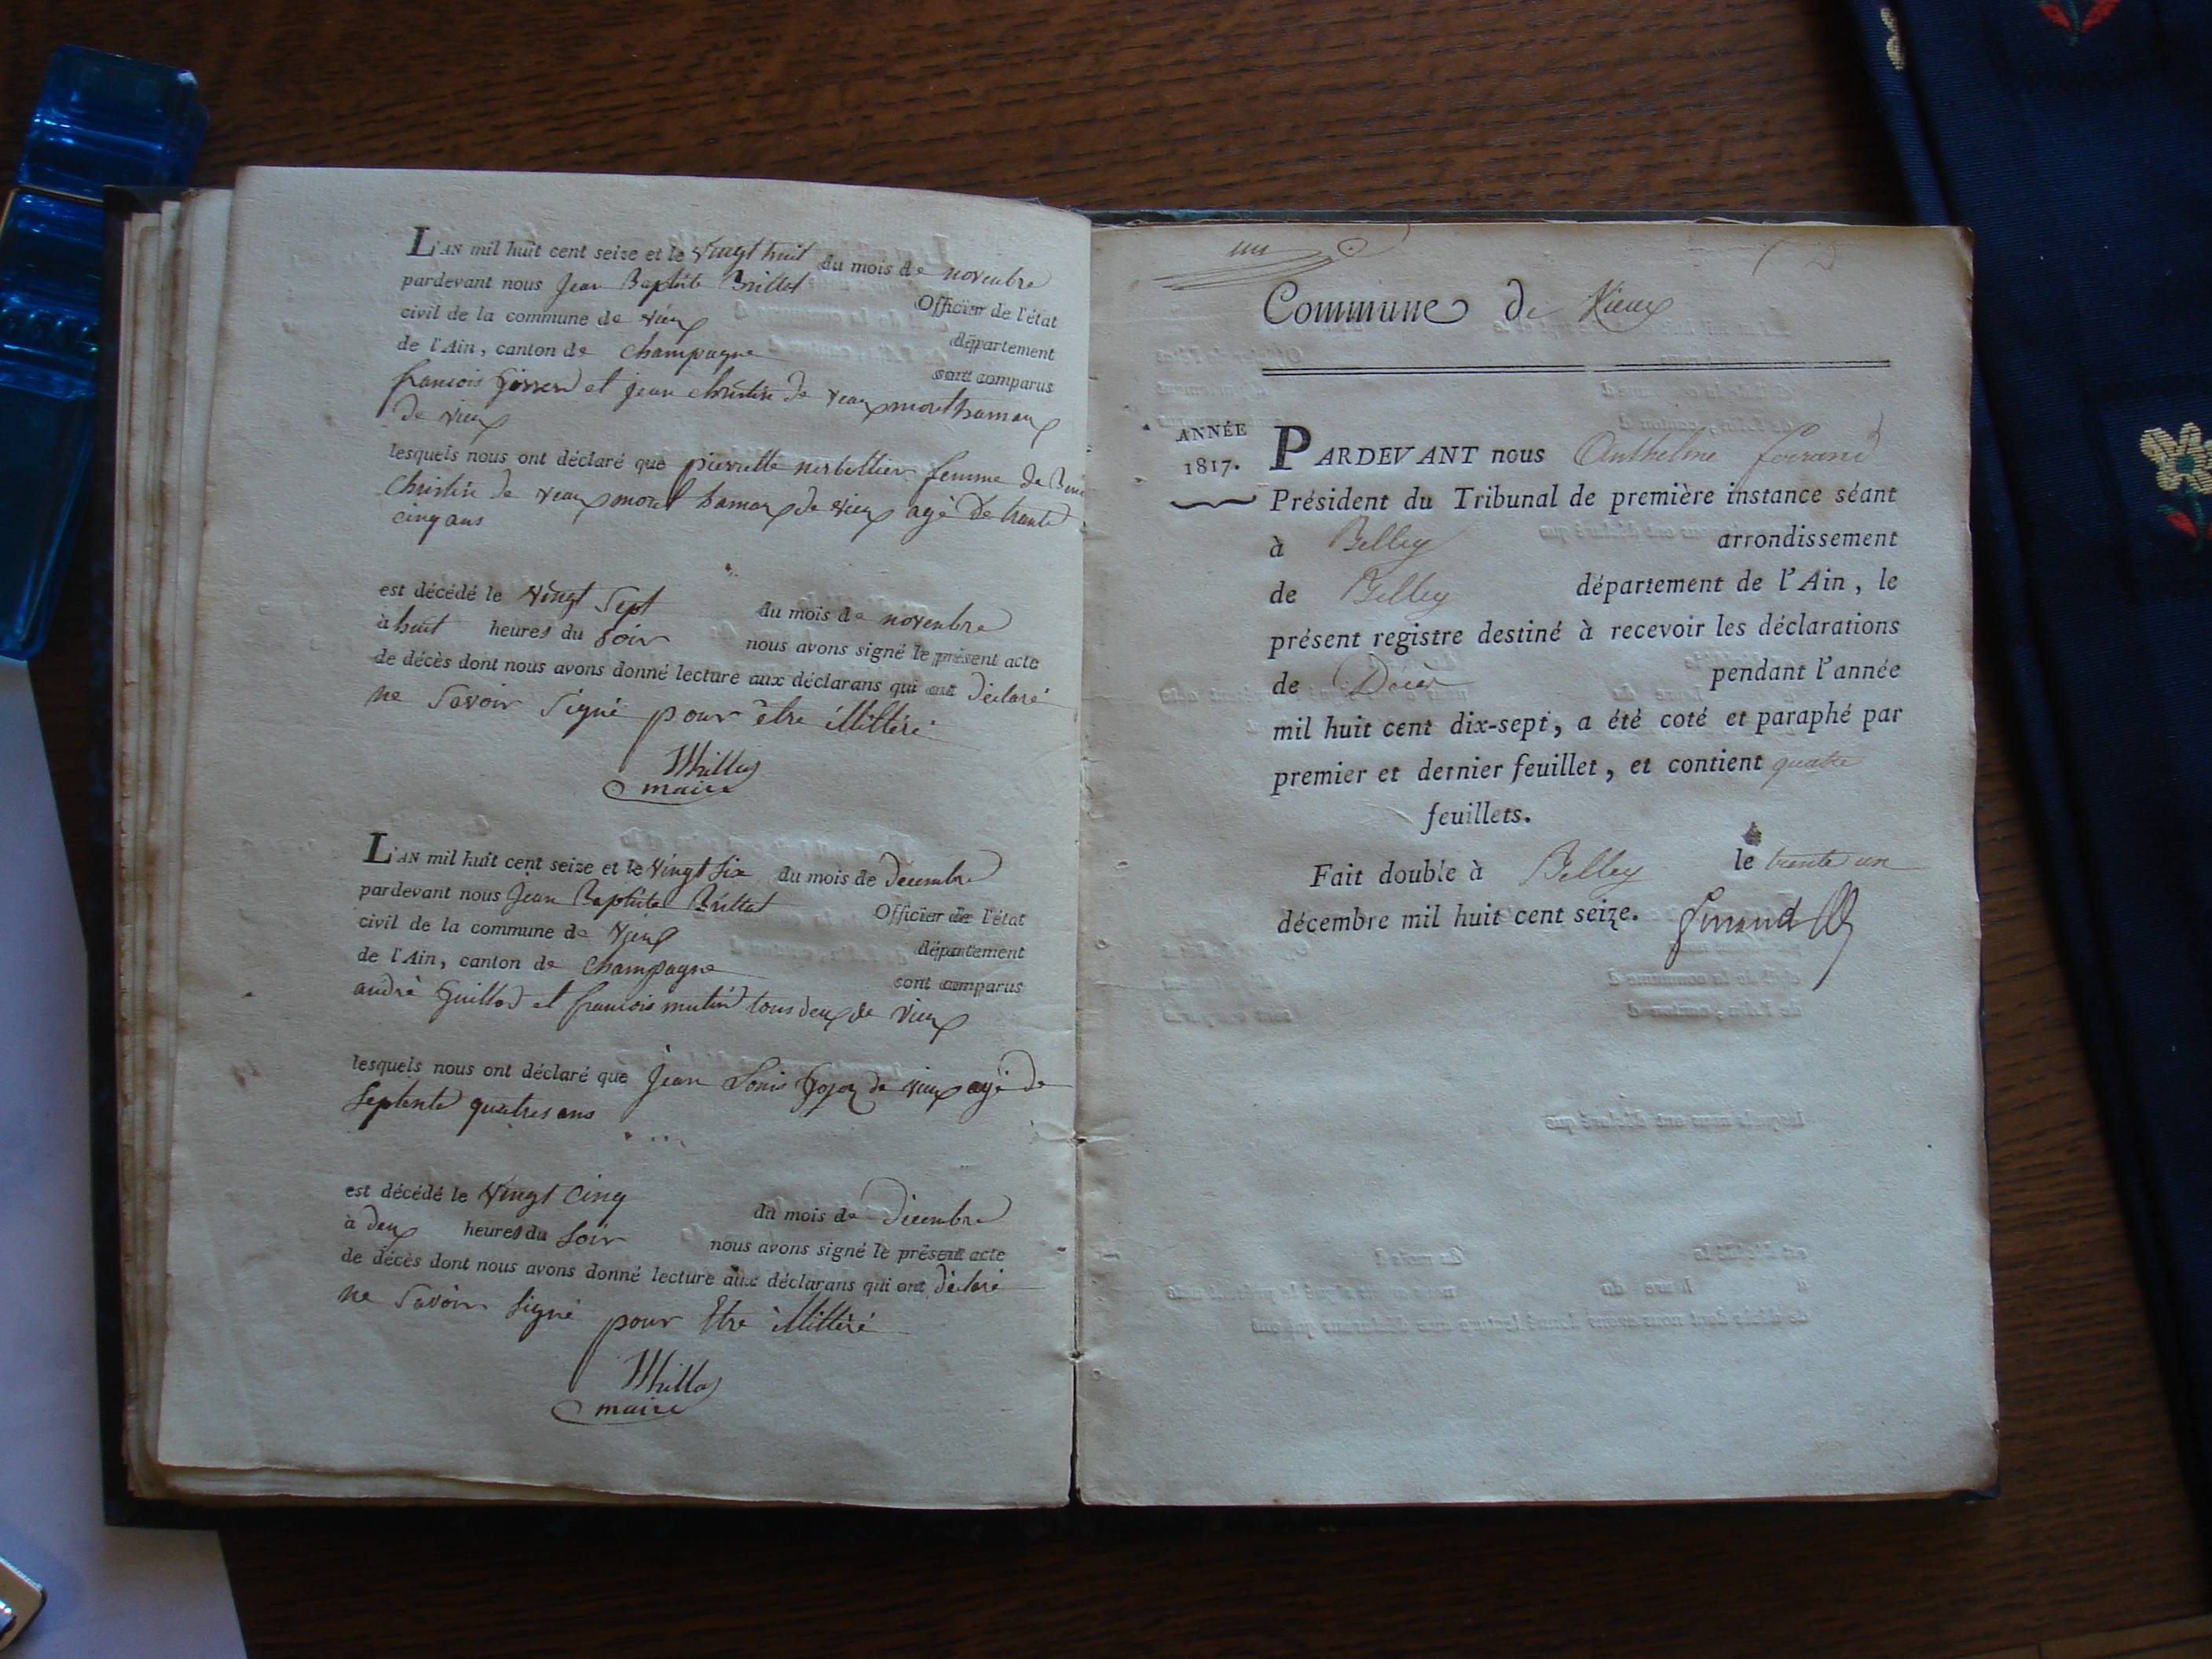 L'AN mil huit cent seize et le vingt huit du mois de novembre
pardevant nous Jean Baptiste Brillat Officier de l'état
civil de la commune de vieux département
de l'Ain, canton de champagne sont comparus
francois et jean christin de
de vieux
lesquels nous ont déclaré que pierrette femme de
christin de de vieux agé de trente
cinq ans
est décédé le vingt sept du mois de novembre
à huit heures du soir nous avons signé le présent acte
de décès dont nous avons donné lecture aux déclarans qui ont déclaré
ne savoir signé pour être illittéré
maire
L'AN mil huit cent seize et le vingt six du mois de décembre
pardevant nous Jean Baptiste Brillat Officier de l'état
civil de la commune de vieux département
de l'Ain, canton de champagne sont comparus
andré guillod et francois mutin tous deux de vieux
lesquels nous ont déclaré que jean Louis de vieux agé de
septente quatres ans
est décédé le vingt cinq du mois de décembre
à deux heures du soir nous avons signé le présent acte
de décès dont nous avons donné lecture aux déclarans qui ont déclaré
ne savoir signé pour être illittéré
maire
un
Commune de Vieux
ANNÉE
1817.
PARDEVANT nous Anthelme
Président du Tribunal de première instance séant
à Belley arrondissement
de Belley département de l'Ain, le
présent registre destiné à recevoir les déclarations
de Décès pendant l'année
mil huit cent dix-sept, a été coté et paraphé par
premier et dernier feuillet, et contient quatre
feuillets.
Fait double à Belley le trente un
décembre mil huit cent seize.